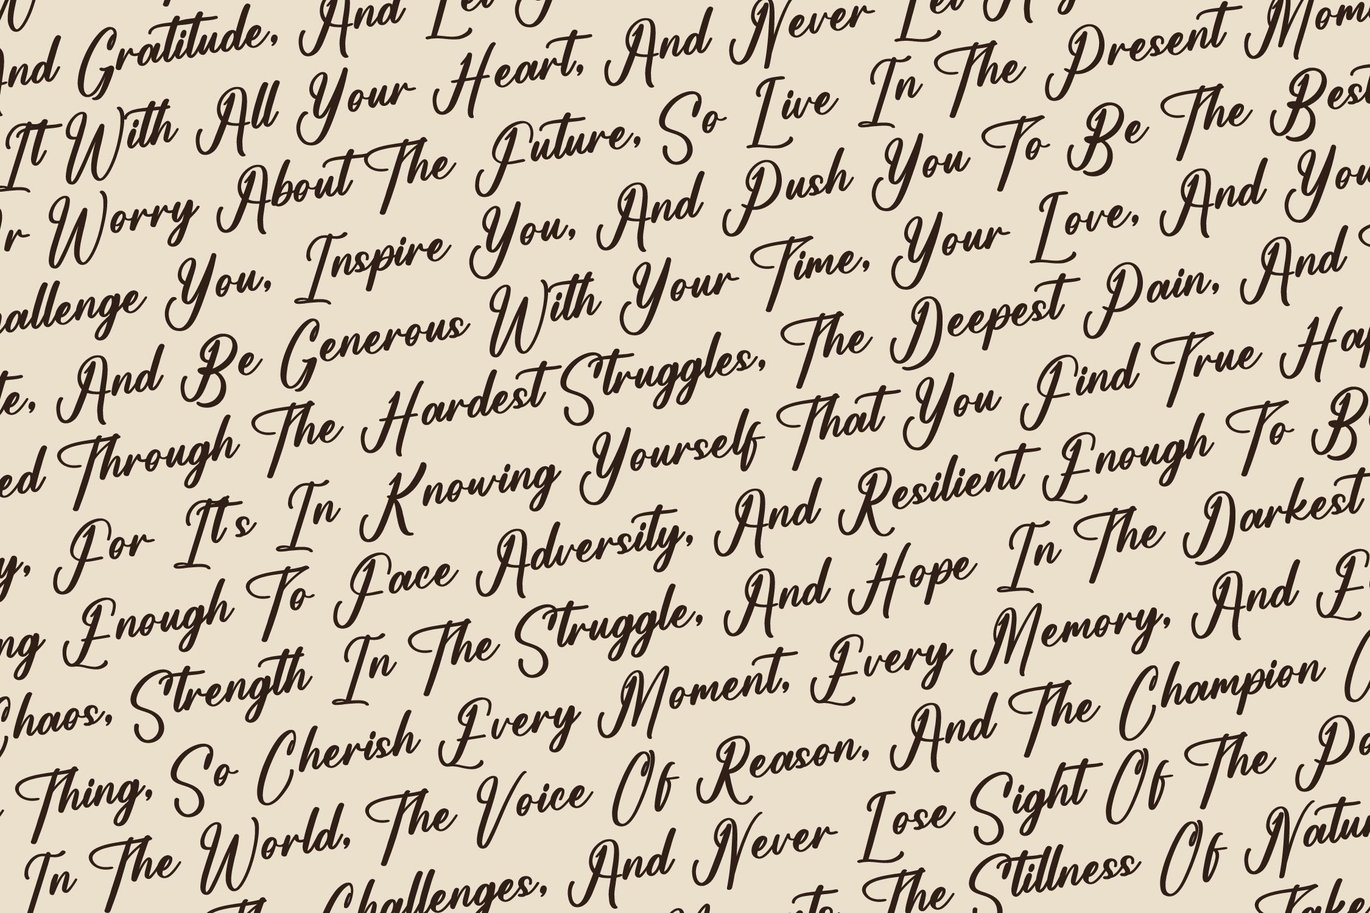 And Gratitude, And Let
It With All Your Heart, And Never Let
r Worry About The Future, So Live In The Present Mom
hallenge You, Inspire You, And Push You To Be The Best
te, And Be Generous With Your Time, Your Love, And You
ed Through The Hardest Struggles, The Deepest Pain, And
y, For It's In Knowing Yourself That You Find True Hap
ng Enough To Face Adversity, And Resilient Enough To B
Chaos, Strength In The Struggle, And Hope In The Darkest
Thing, So Cherish Every Moment, Every Memory, And E
In The World, The Voice Of Reason, And The Champion
The Challenges, And Never Lose Sight Of The Po
The Stillness Of Natu
Take